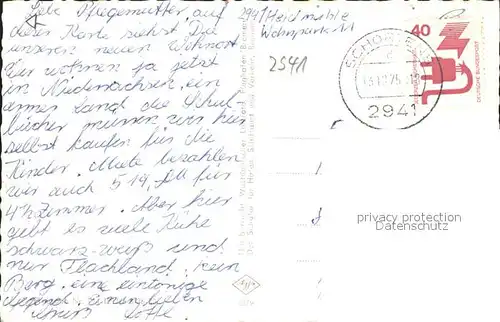 Liebe Pflegemutter auf
dieser Karte siehst Du
unseren neuen Wohnort
Wir wohnen ja jetzt
in Niedersachsen, ein
armes Land die Schul
bücher müssen wir hier
selbst kaufen für die
Kinder. Miete bezahlen
wir auch 519,- DM für
4½ Zimmer. Aber hier
gibt es viele Kühe
schwarz-weiß und
nur Flachland, kein
Berg, eine eintönige
Gegend. einen lieben
Gruß Lotte
2941 Heidmühle
Wohnpark 11
2941
SCHORTENS
75
2941
40
DEUTSCHE BUNDESPOST
privacy protection
Datenschutz